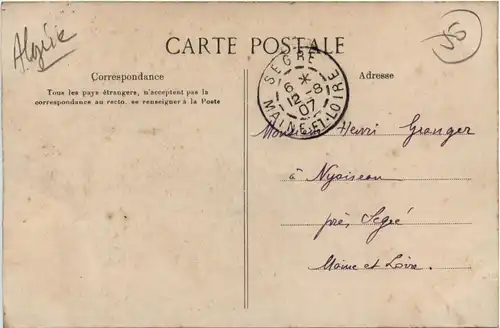 Algérie
CARTE POSTALE
Correspondance
Tous les pays étrangers, n'acceptent pas la
correspondance au recto. se renseigner à la Poste
SEGRÉ
6 *
12 -8
07
MAINE-ET-LOIRE
Adresse
Monsieur Henri Granger
à Nyoiseau
près Segré
Maine et Loire.